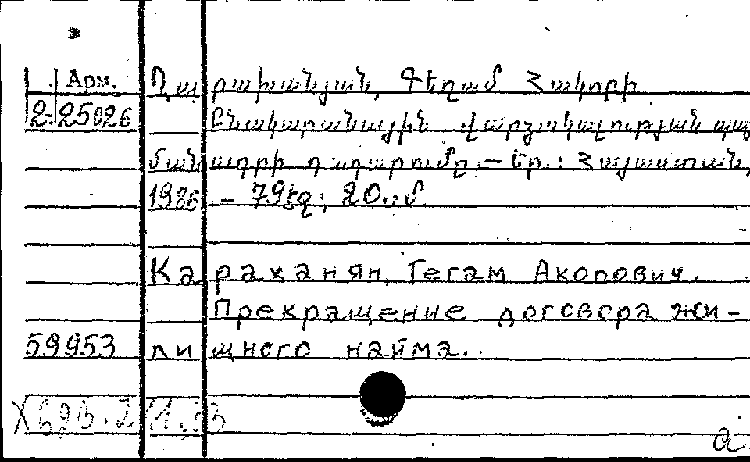 Арм.
2-25026
Ղարախանյան, Գեղամ Հակոբի
Բնակարանային վարձակալության պայ
մանագրի դադարումը.— Եր.: Հայաստան,
1986 – 79 էջ; 20 սմ
Караханян, Гегам Акопович.
Прекращение договора жи-
59953 лищного найма.
а